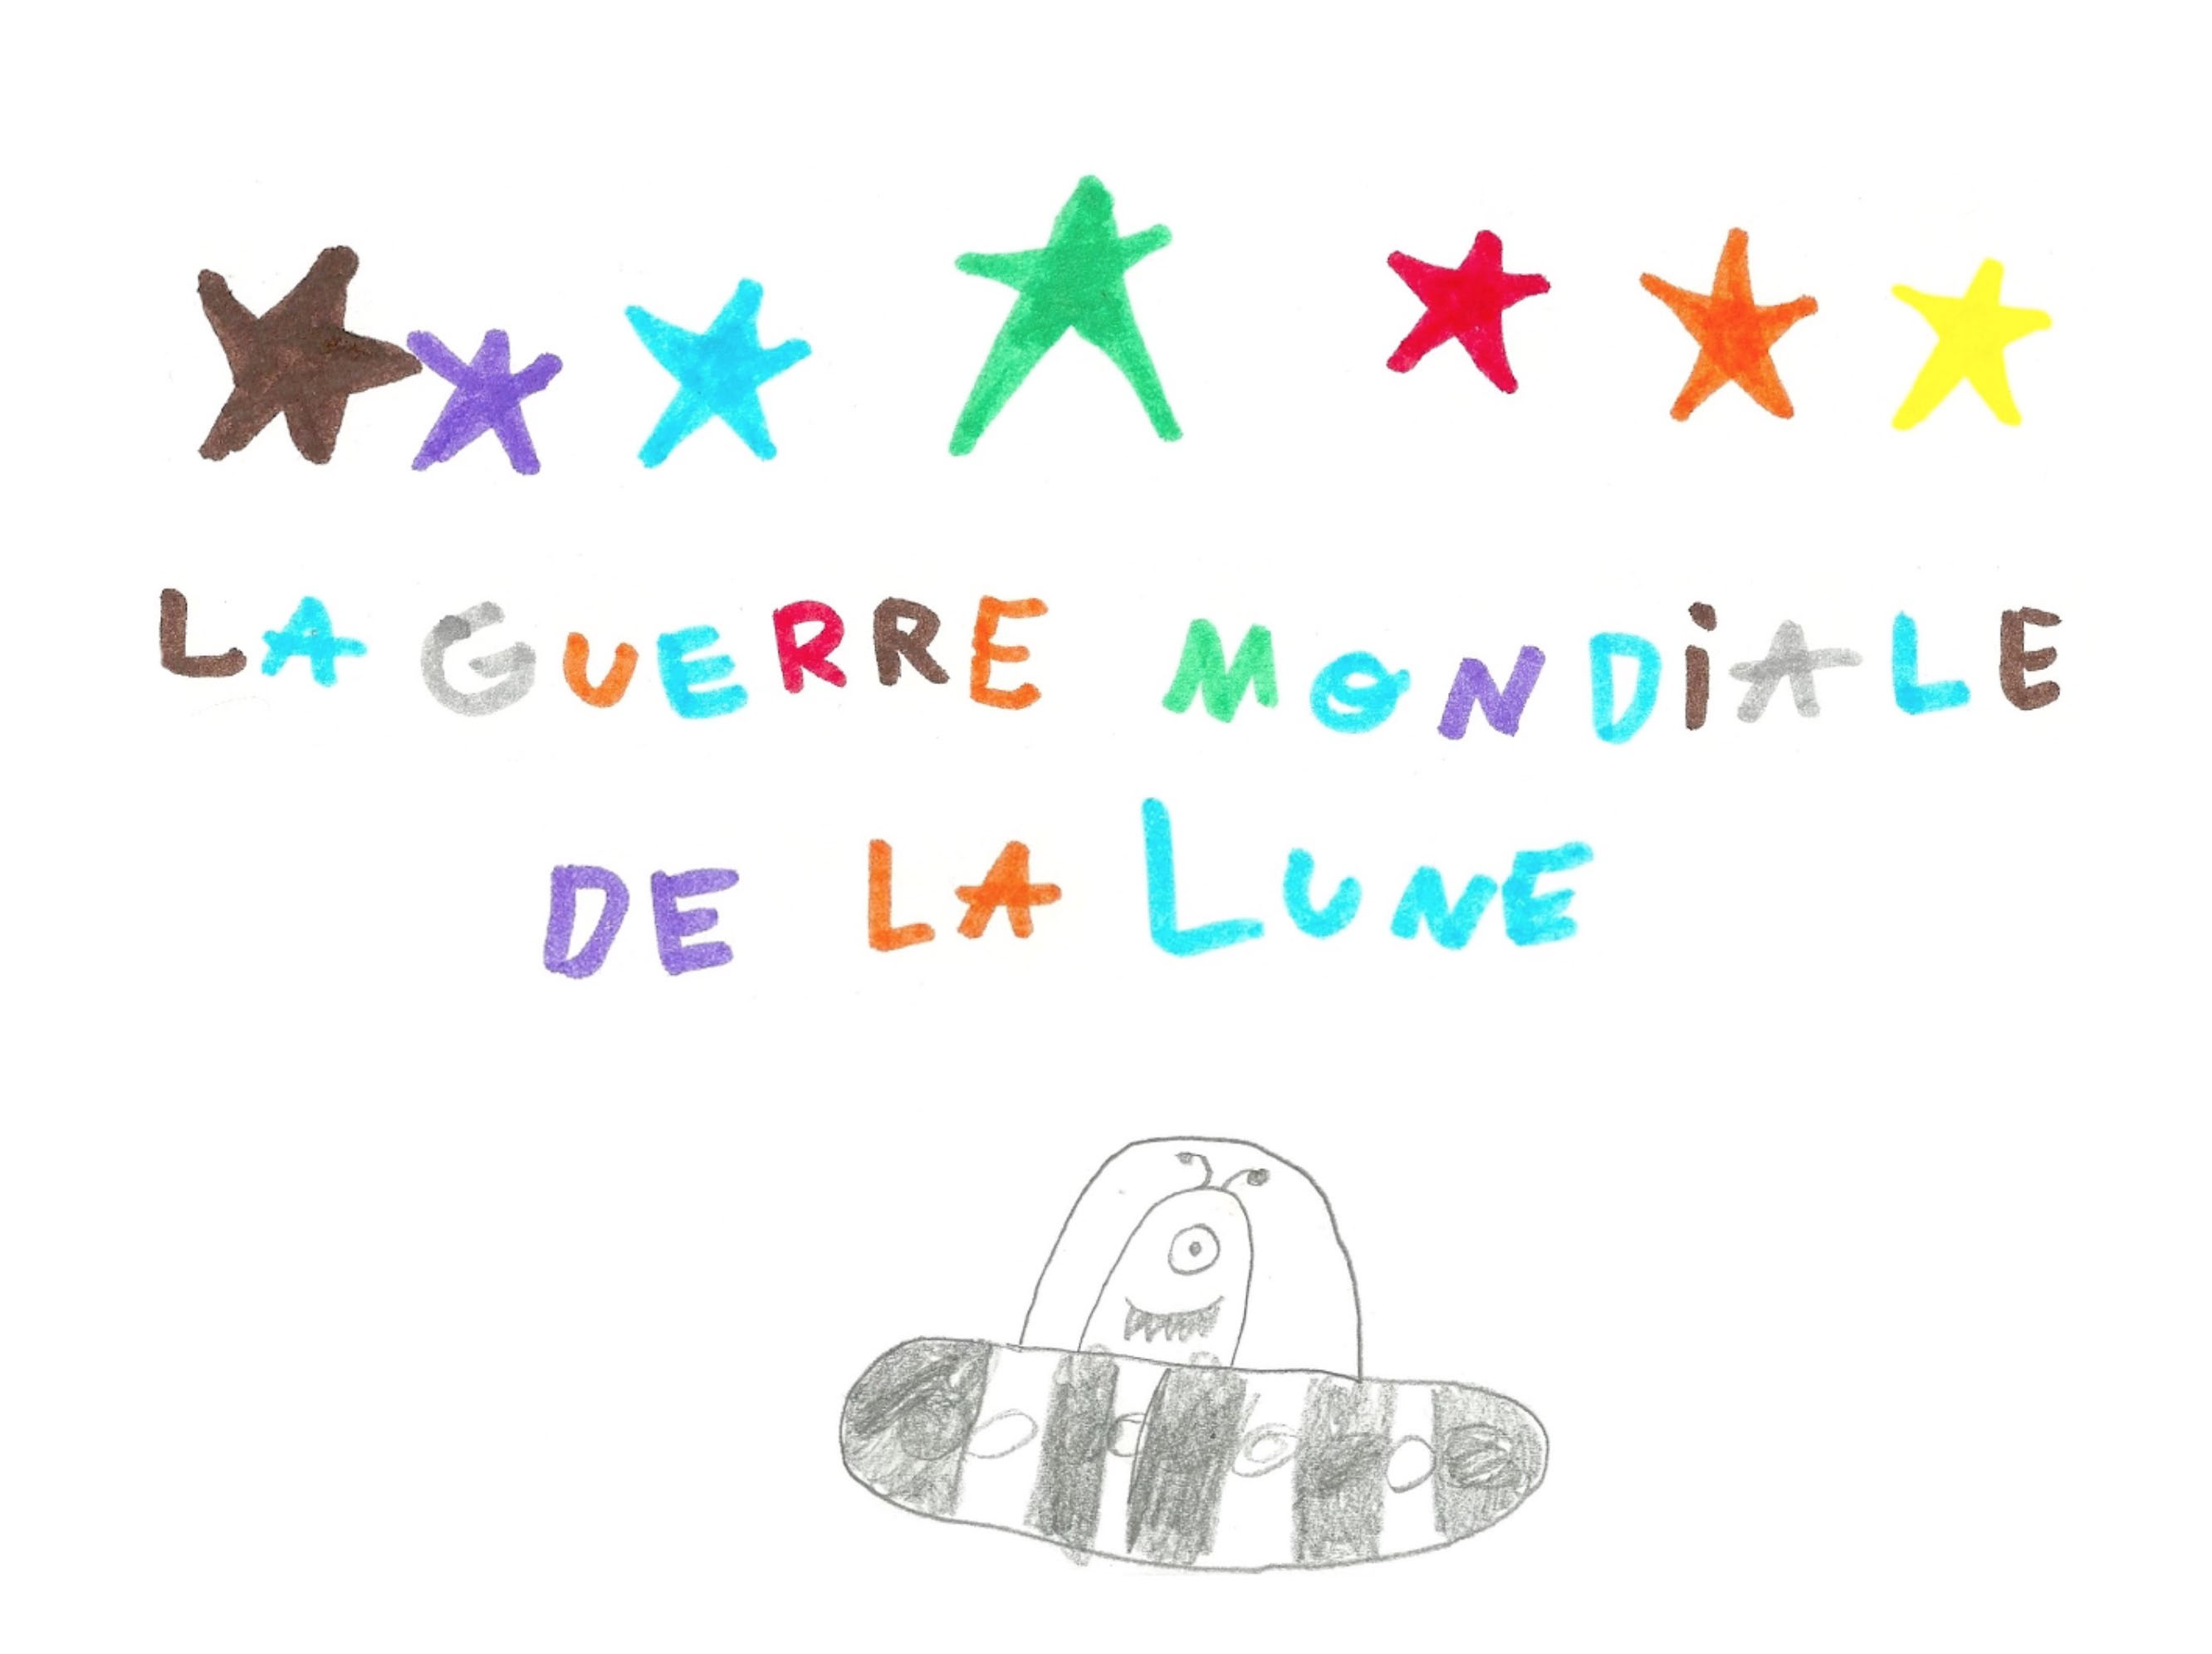 LA GUERRE MONDiALE
DE LA LUNE